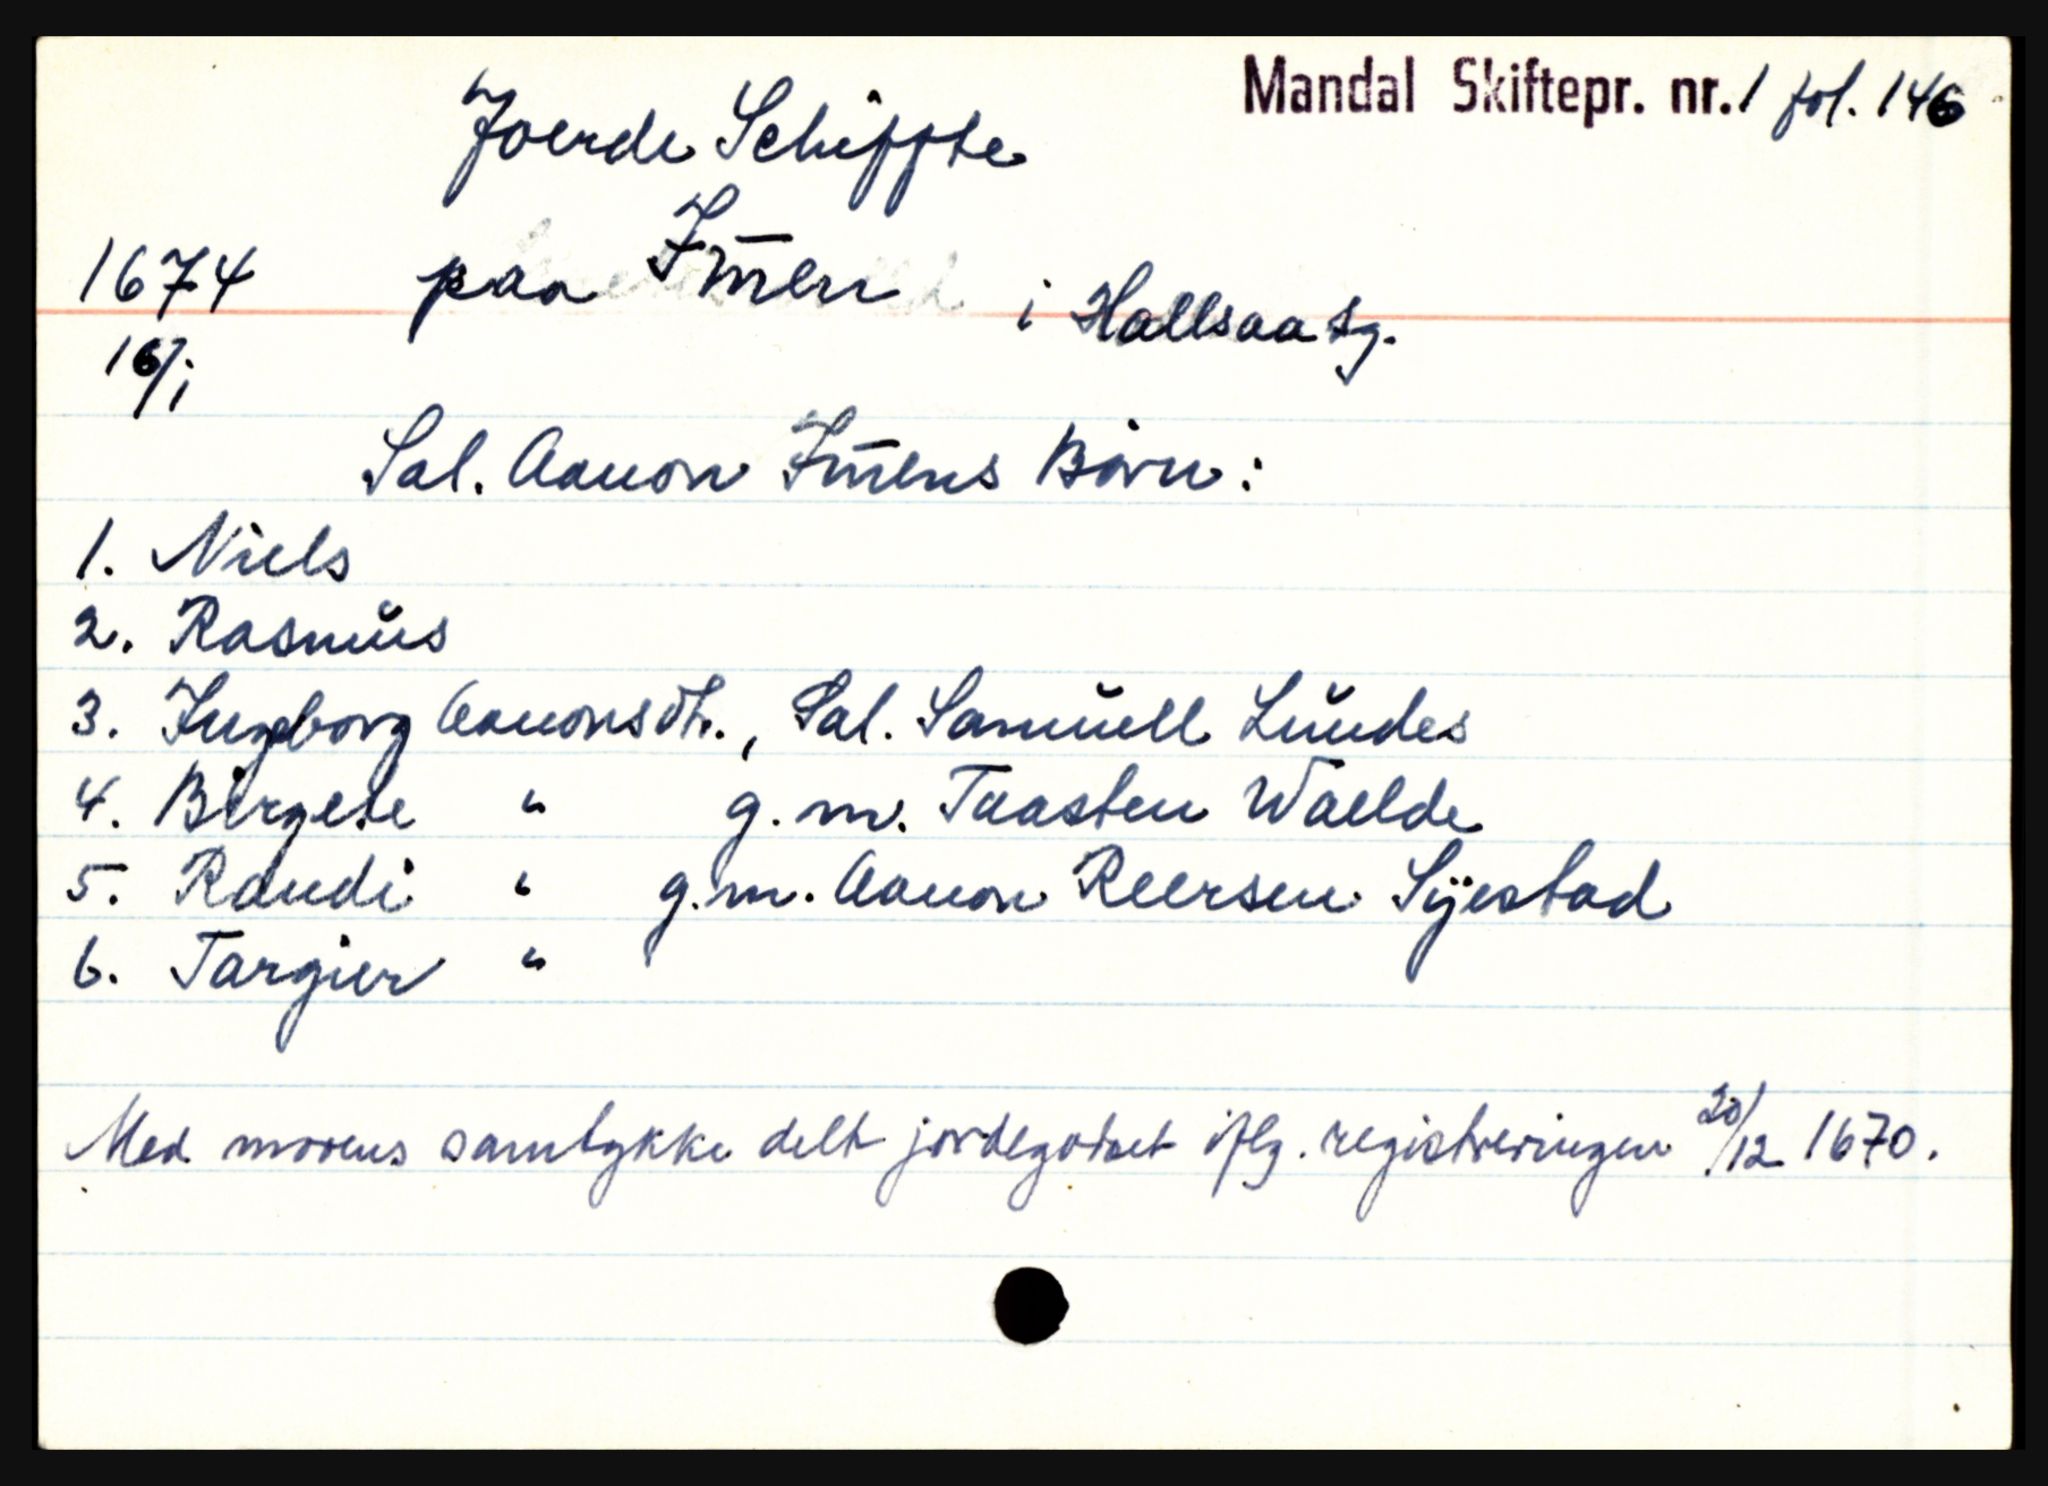 Mandal Skiftepr. nr. 1 fol. 146
Joerde Schiffte
1674 paa Im̄en i Hallsaa sg.
16/1
Sal. Aanon Im̄ens Børn:
1. Niels
2. Rasmŭs
3. Ingeborg Aanonsdt., Sal. Samŭell Lŭndes
4. Birgete " g. m. Taasten Waelde
5. Randi " g. m. Aanon Reersen Sÿestad
6. Targier "
Med morens samtykke delt jordegodset iflg. registreringen 20/12 1670.